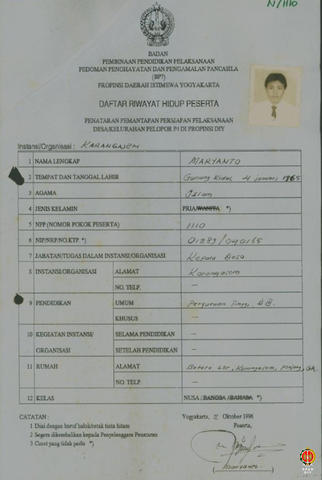 N/1110
BADAN
PEMBINAAN PENDIDIKAN PELAKSANAAN
PEDOMAN PENGHAYATAN DAN PENGAMALAN PANCASILA
(BP7)
PROPINSI DAERAH ISTIMEWA YOGYAKARTA
DAFTAR RIWAYAT HIDUP PESERTA
PENATARAN PEMANTAPAN PERSIAPAN PELAKSANAAN
DESA/KELURAHAN PELOPOR P4 DI PROPINSI DIY
Instansi/Organisasi : KARANGASEM
1 NAMA LENGKAP MARYANTO
2 TEMPAT DAN TANGGAL LAHIR Gunung Kidul, 4 Januari 1965
3 AGAMA Islam
4 JENIS KELAMIN PRIA/WANITA *)
5 NPP (NOMOR POKOK PESERTA) 1110
6 NIP/NRP/NO.KTP. *) 01289/040165
7 JABATAN/TUGAS DALAM INSTANSI/ORGANISASI Kepala Desa
8 INSTANSI/ORGANISASI ALAMAT Karangasem
NO. TELP. —
9 PENDIDIKAN UMUM Perguruan Tinggi
KHUSUS —
10 KEGIATAN INSTANSI/ SELAMA PENDIDIKAN —
ORGANISASI SETELAH PENDIDIKAN —
11 RUMAH ALAMAT Karangasem,
NO. TELP. —
12 KELAS NUSA/BANGSA/BAHASA *)
CATATAN :
1 Diisi dengan huruf balok/cetak tinta hitam
2 Segera dikembalikan kepada Penyelenggara Penataran
3 Coret yang tidak perlu *)
Yogyakarta, Oktober 1996
Peserta,
Maryanto